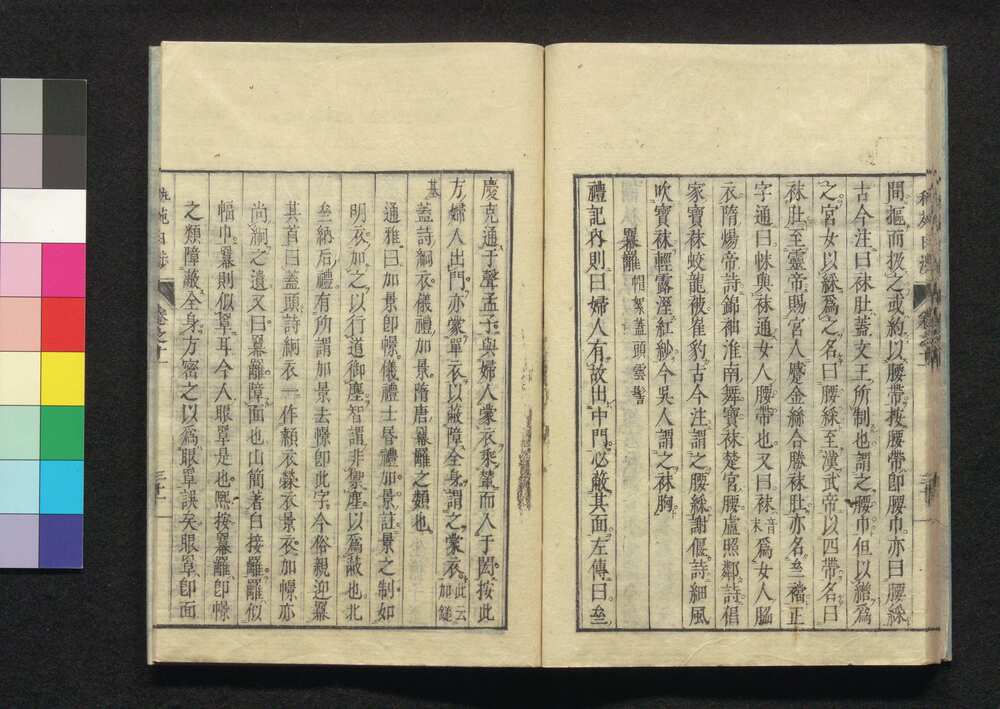 間摳而扱之或約以腰帶按腰帶即腰巾亦曰腰綵
古今注曰袜肚蓋文王所制也謂之腰巾但以繒為
之宮女以綵為之名曰腰綵至漢武帝以四帶名曰
袜肚至靈帝賜宮人蹙金絲合勝袜肚亦名𠫵襠正
字通曰帓與袜通女人腰帶也又曰袜音末為女人脇
衣隋煬帝詩錦袖淮南舞寶袜楚宮腰盧照鄰詩倡
家寶袜蛟龍被崔豹古今注謂之腰綵謝偃詩細風
吹寶袜輕露溼紅紗今吳人謂之袜胸
冪䍦 帽絮蓋頭雲髻
禮記內則曰婦人有故出中門必蔽其面左傳曰𠫵
慶克通于聲孟子與婦人蒙衣乘輦而入于閎按此
方婦人出門亦蒙單衣以蔽障全身謂之蒙衣此云加
蓋詩絅衣儀禮加景隋唐冪䍦之類也
通雅曰加景即幜儀禮士昏禮加景註景之制如
明衣加之以行道御塵智謂非禦塵以為蔽也北
𠫵納后禮有所謂加景去幜即此字今俗親迎冪
其首曰蓋頭詩絅衣一作顈衣褧衣景衣加幜亦
尚絅之遺又曰冪䍦障面也山簡著白接䍦䍦似
幅巾冪則似罩耳今人眼罩是也熙按冪䍦即幜
之類障蔽全身方密之以為眼罩誤矣眼罩即面